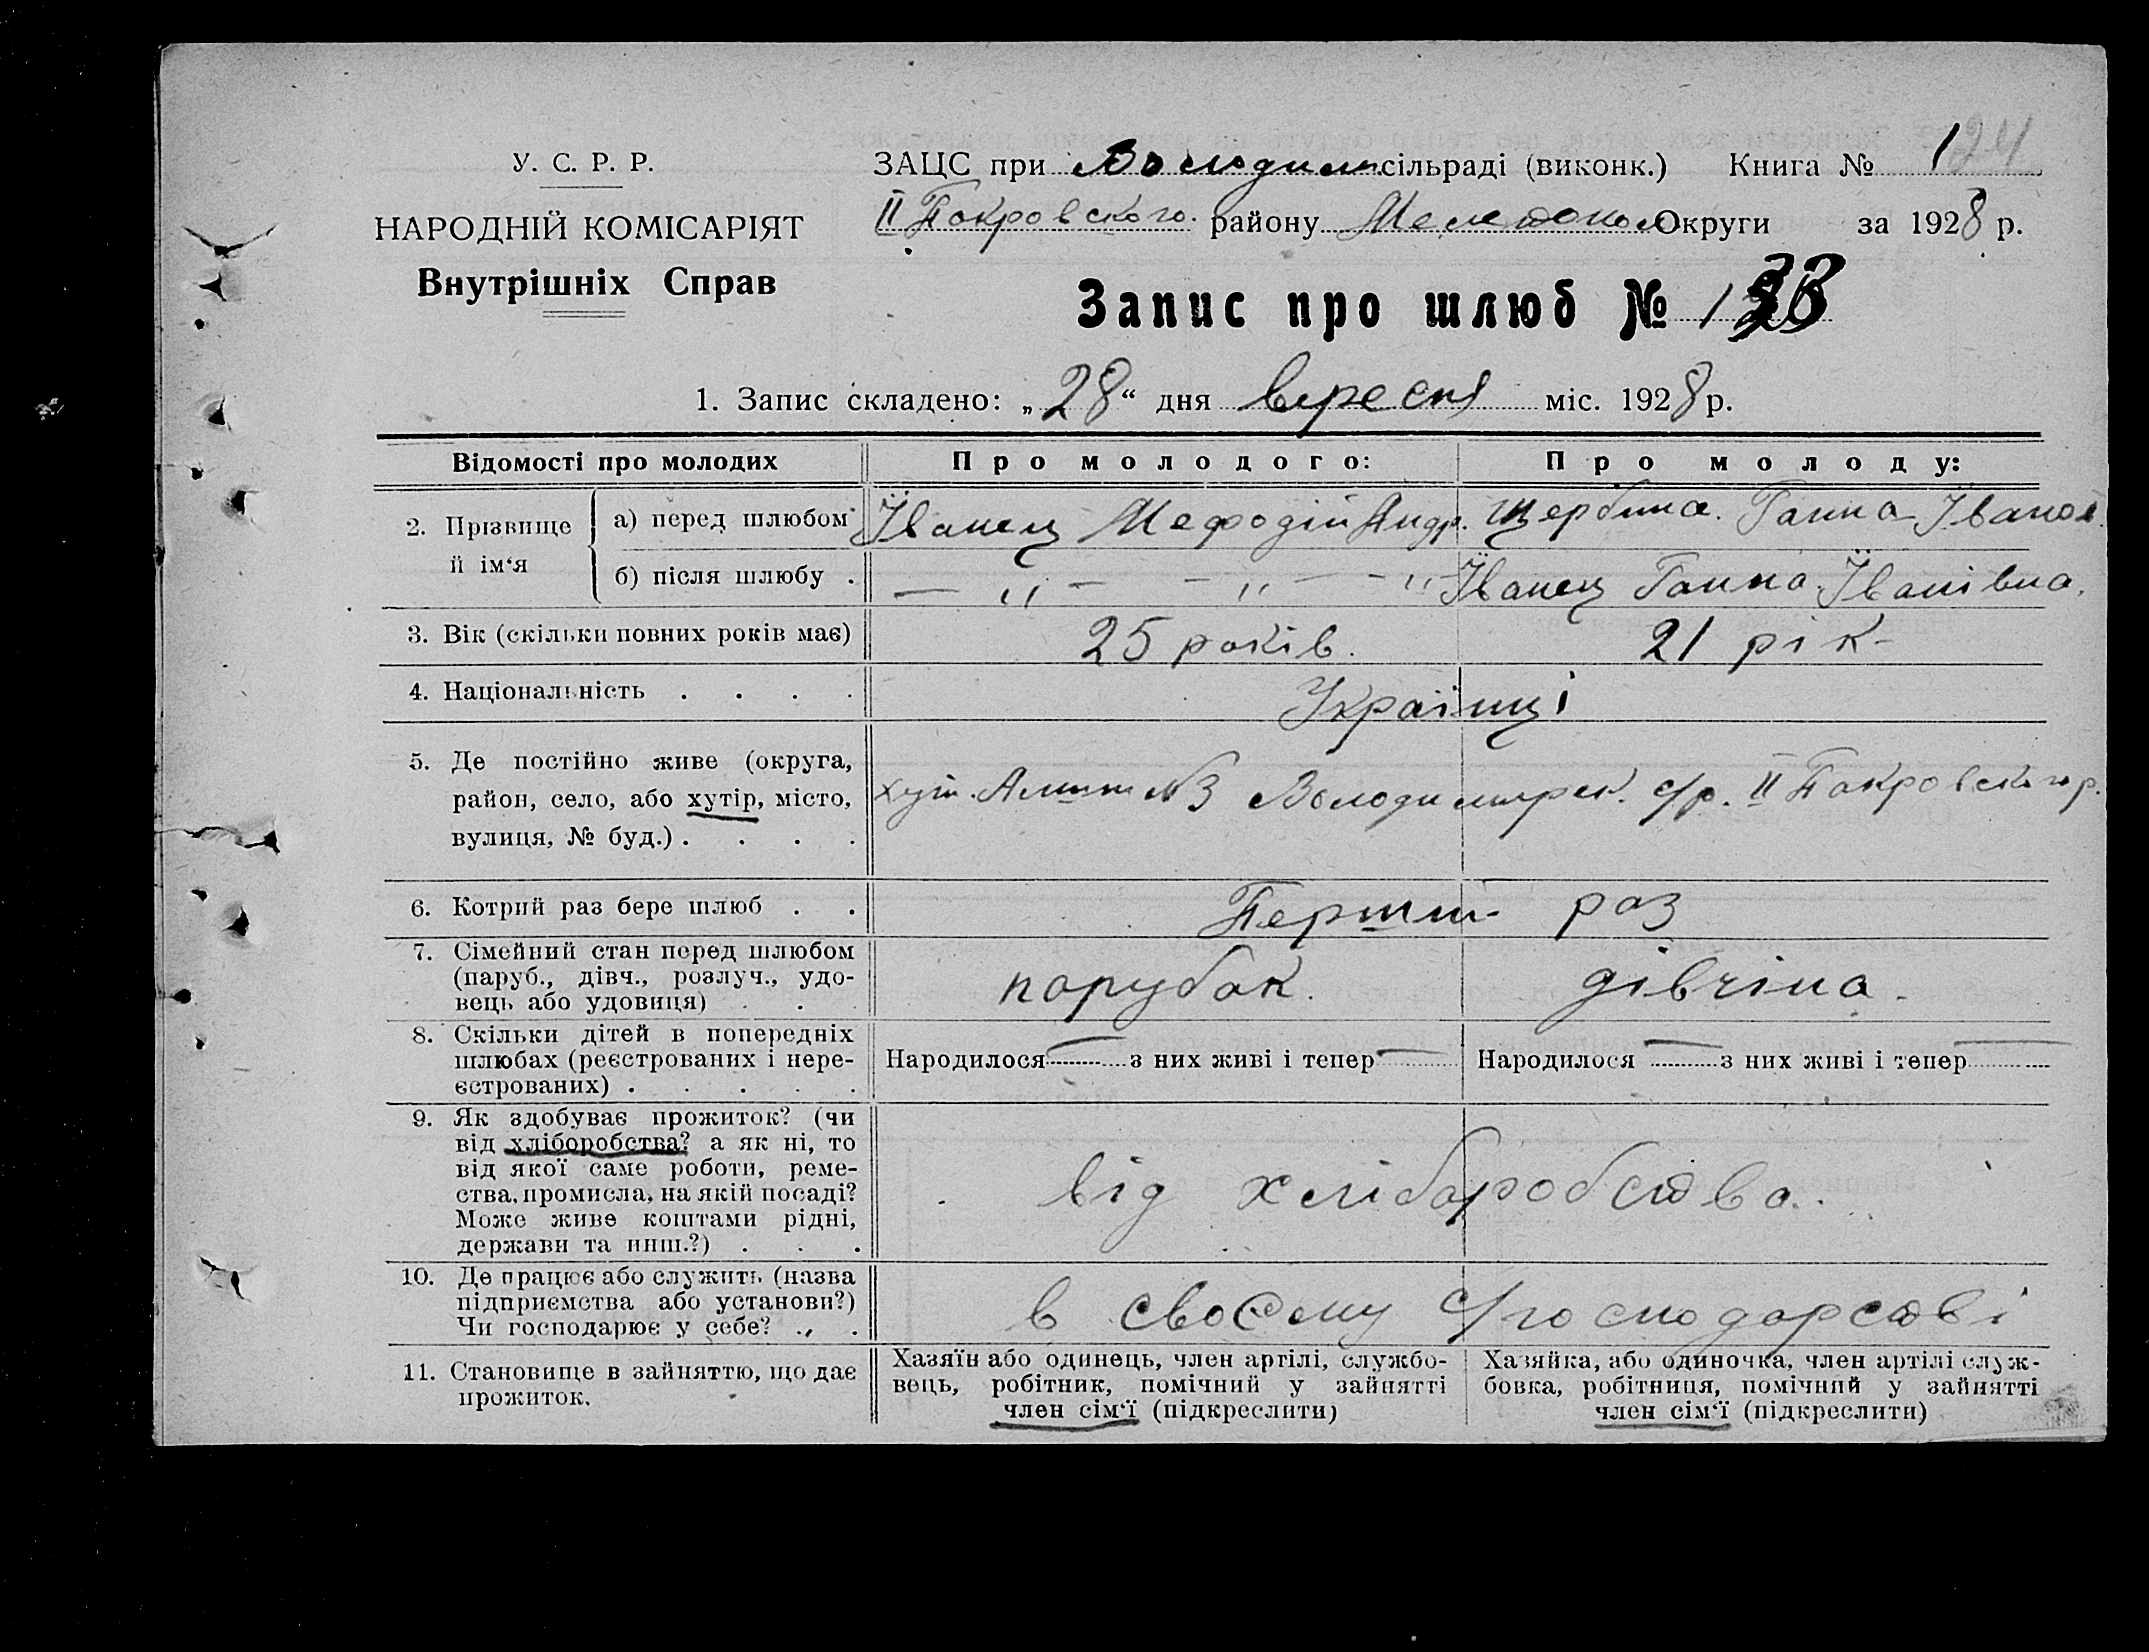 124
У. С. Р. Р.
ЗАЦС при Володим сільраді (виконк.) Книга № 1
НАРОДНІЙ КОМІСАРІЯТ
II Покровского. району Мелетопол Округи за 1928 р.
Внутрішніх Справ
Запис про шлюб №
1. Запис складено: „28“ дня вересня міс. 1928 р.
Відомості про молодих
Про молодого:
Про молоду:
2. Прізвище й ім‘я
а) перед шлюбом
Іванец Мефодій Андр.
Щербина. Ганна Іванов.
б) після шлюбу .
— „ — — „ — — „
Іванец Ганна Іванівна.
3. Вік (скільки повних років має)
25 років.
21 рік-
4. Національність . . . .
Українці
5. Де постійно живе (округа,
район, село, або хутір, місто,
вулиця, № буд.) . . . .
хут. №3 Володимирск. с/р. II Покровского р.
6. Котрий раз бере шлюб . .
Перший раз
7. Сімейний стан перед шлюбом
(паруб., дівч., розлуч., удо-
вець або удовиця) . .
парубок.
дівчіна.
8. Скільки дітей в попередніх
шлюбах (реєстрованих і нере-
єстрованих) . . . . .
Народилося — з них живі і тепер —
Народилося — з них живі і тепер —
9. Як здобуває прожиток? (чи
від хліборобства? а як ні, то
від якої саме роботи, реме-
ства, промисла, на якій посаді?
Може живе коштами рідні,
держави та инш.?) . . .
від хліборобства.
10. Де працює або служить (назва
підприємства або установи?)
Чи господарює у себе? . .
в своєму с/господарстві
11. Становище в зайняттю, що дає
прожиток.
Хазяїн або одинець, член артілі, службо-
вець, робітник, помічний у зайнятті
член сім‘ї (підкреслити)
Хазяйка, або одиночка, член артілі служ-
бовка, робітниця, помічний у зайнятті
член сім‘ї (підкреслити)